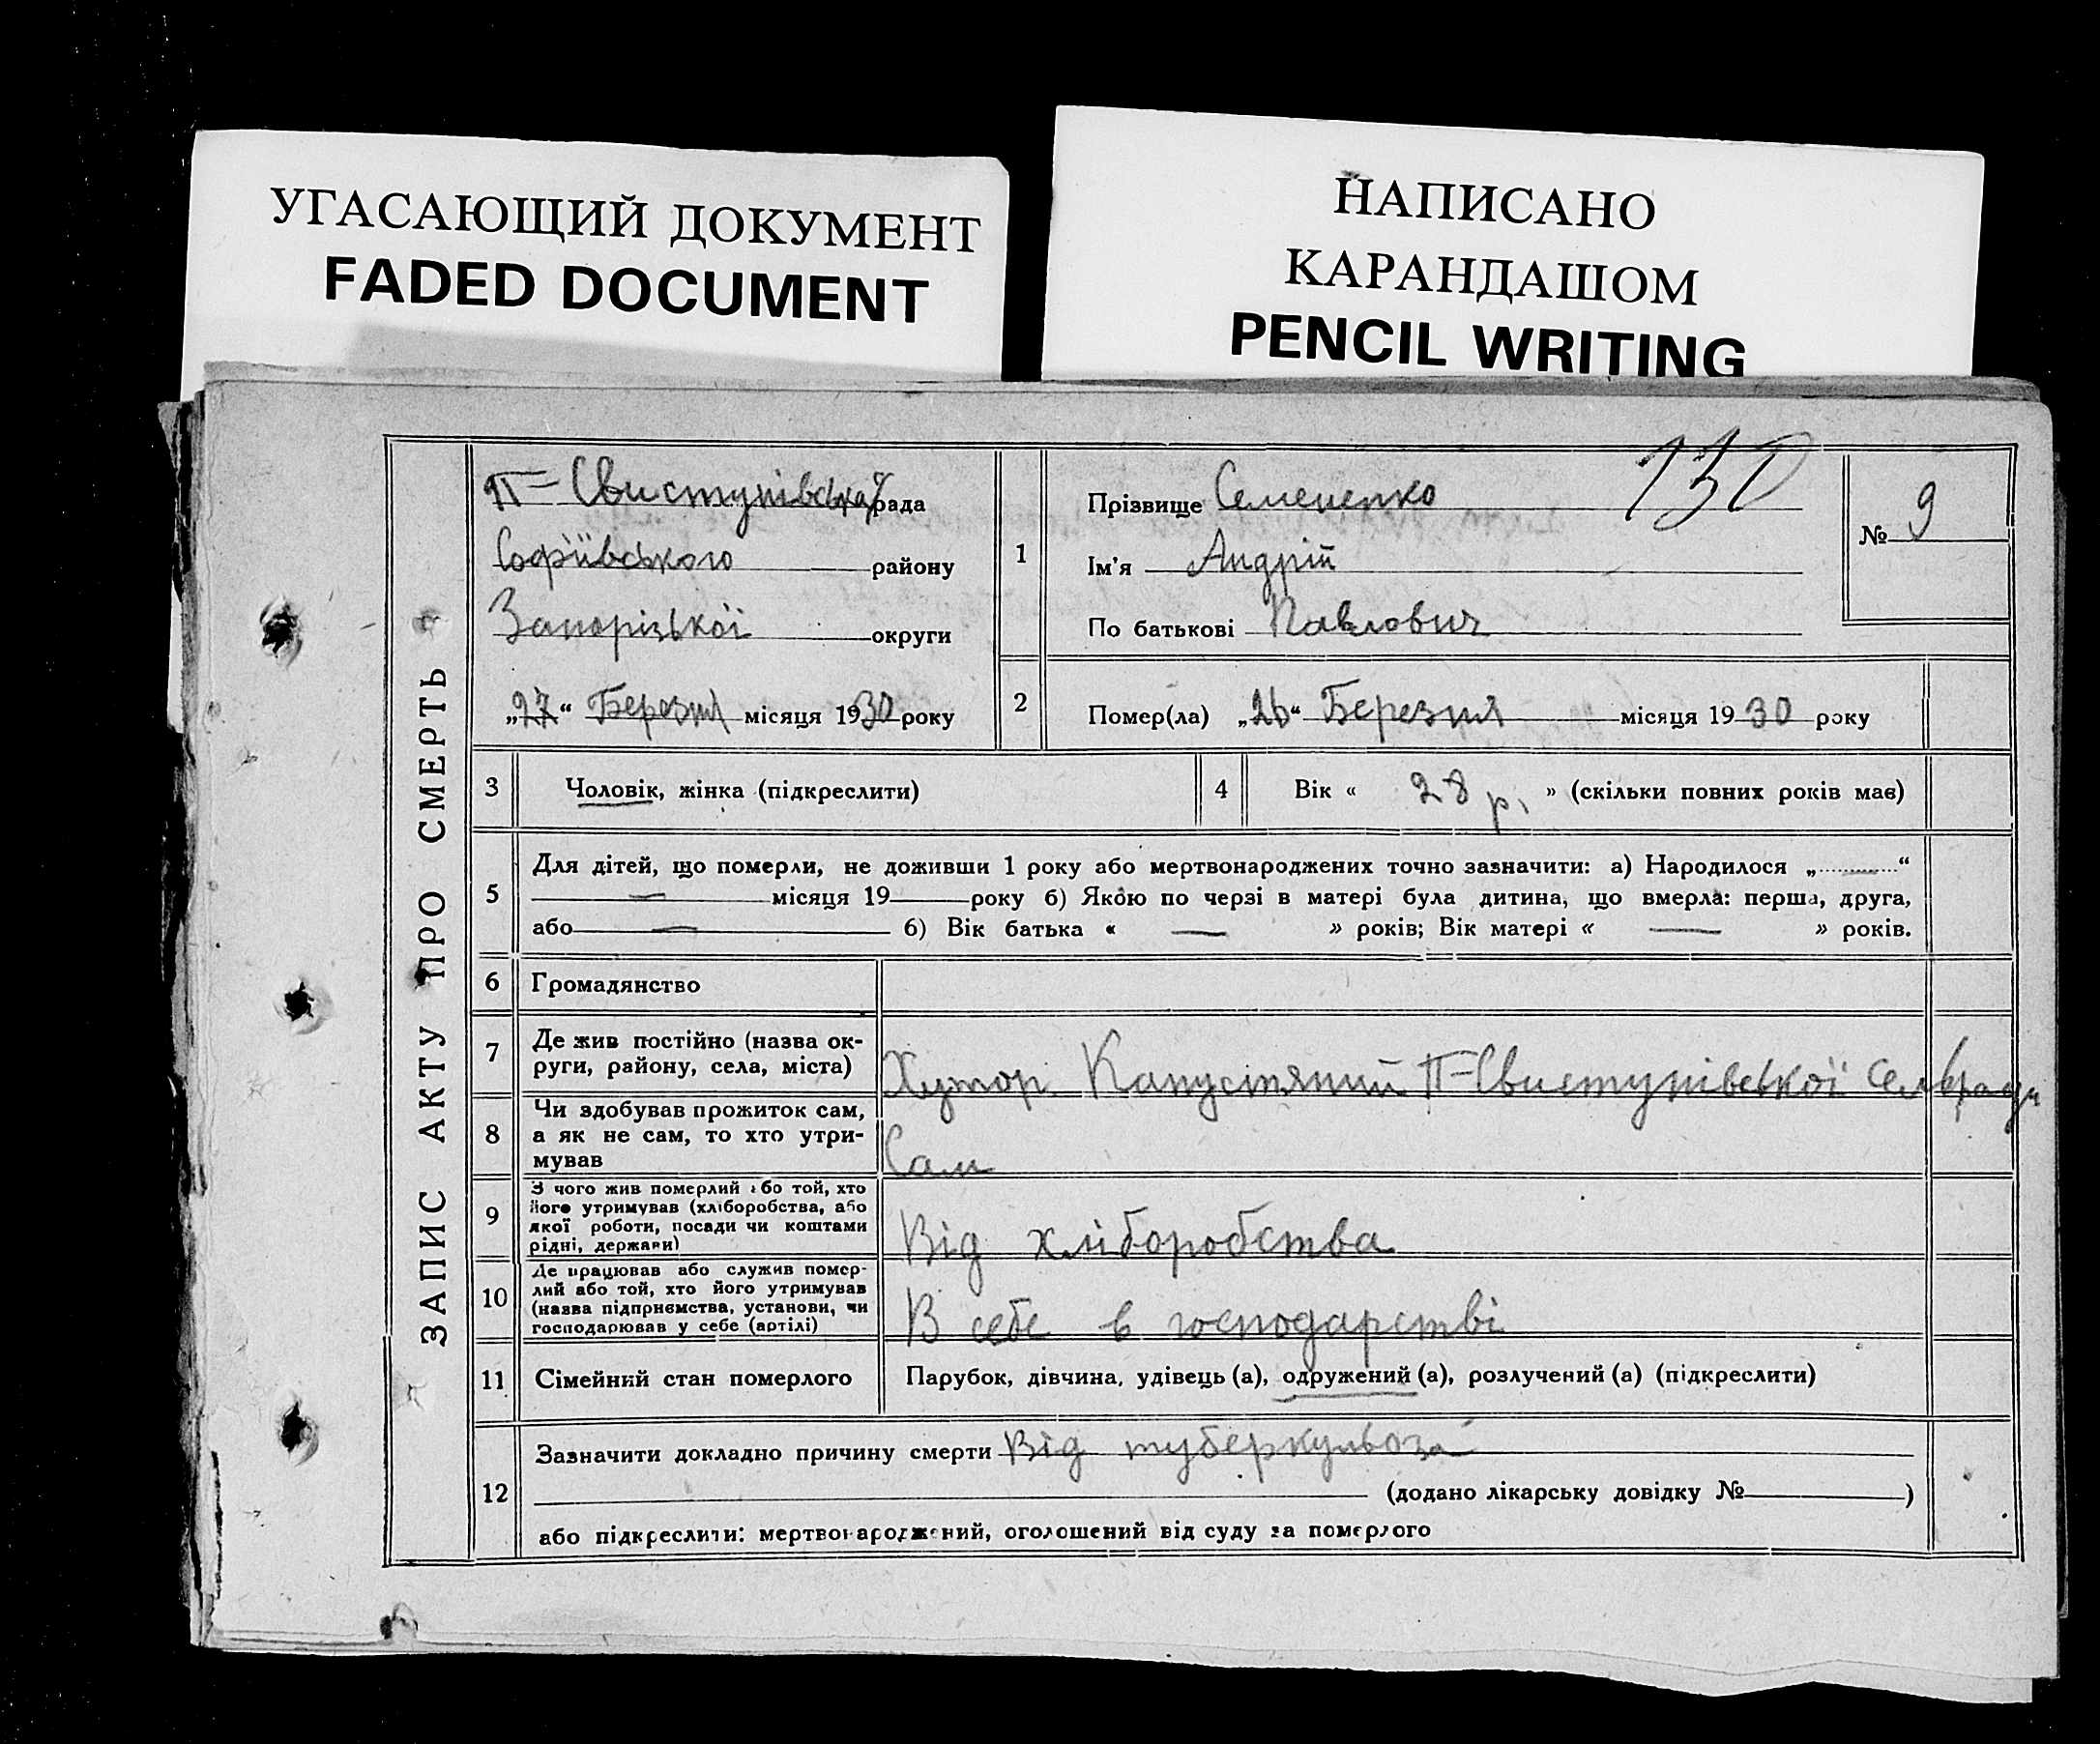 УГАСАЮЩИЙ ДОКУМЕНТ
FADED DOCUMENT
НАПИСАНО
КАРАНДАШОМ
PENCIL WRITING
ЗАПИС АКТУ ПРО СМЕРТЬ
П-Свистунівська рада
Софіївського району
Запорізької округи
„27“ Березня місяця 1930 року
130
1
Прізвище Семененко
Ім'я Андрій
По батькові Павлович
№ 9
2 Помер(ла) „26“ Березня місяця 1930 року
3 Чоловік, жінка (підкреслити)
4 Вік « 28 р. » (скільки повних років має)
5
Для дітей, що померли, не доживши 1 року або мертвонароджених точно зазначити: а) Народилося „..........“
— місяця 19 року б) Якою по черзі в матері була дитина, що вмерла: перша, друга,
або — б) Вік батька « — » років; Вік матері « — » років.
6 Громадянство
7 Де жив постійно (назва ок-
руги, району, села, міста)
Хутор Капустяний П-Свистунівської сельради
8 Чи здобував прожиток сам,
а як не сам, то хто утри-
мував
Сам
9 З чого жив померлий або той, хто
його утримував (хліборобства, або
якої роботи, посади чи коштами
рідні, держави)
Від хліборобства
10 Де працював або служив помер-
лий або той, хто його утримував
(назва підприємства, установи, чи
господарював у себе (артілі)
В себе в господарстві
11 Сімейний стан померлого
Парубок, дівчина, удівець (а), одружений (а), розлучений (а) (підкреслити)
12
Зазначити докладно причину смерти Від туберкульоза
(додано лікарську довідку № )
або підкреслити: мертвонароджений, оголошений від суду за померлого